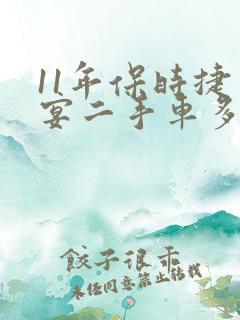 11年保時捷
宴二手車多
餃子很乖
未经同意禁止转载